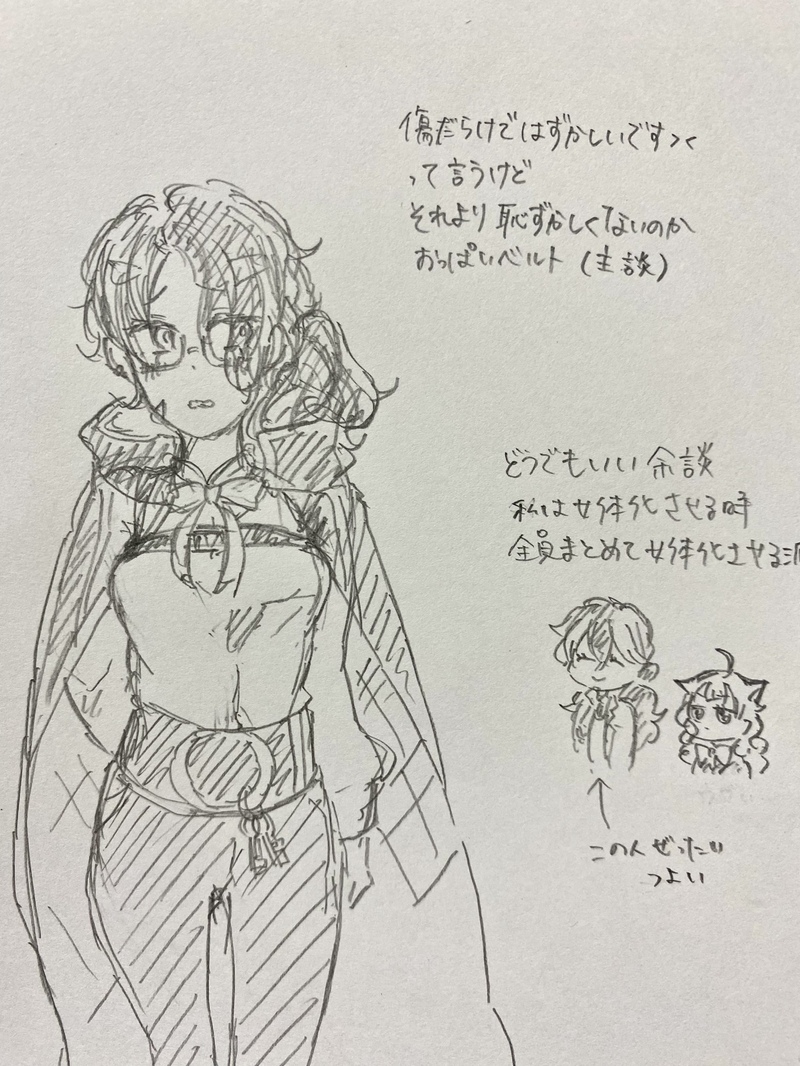 傷だらけではずかしいですっく
って言うけど
それより恥ずかしくないのか
おっぱいベルト(主談)
どうでもいい余談
私は女体化させる時
全員まとめて女体化させる派
この人ぜったい
つよい